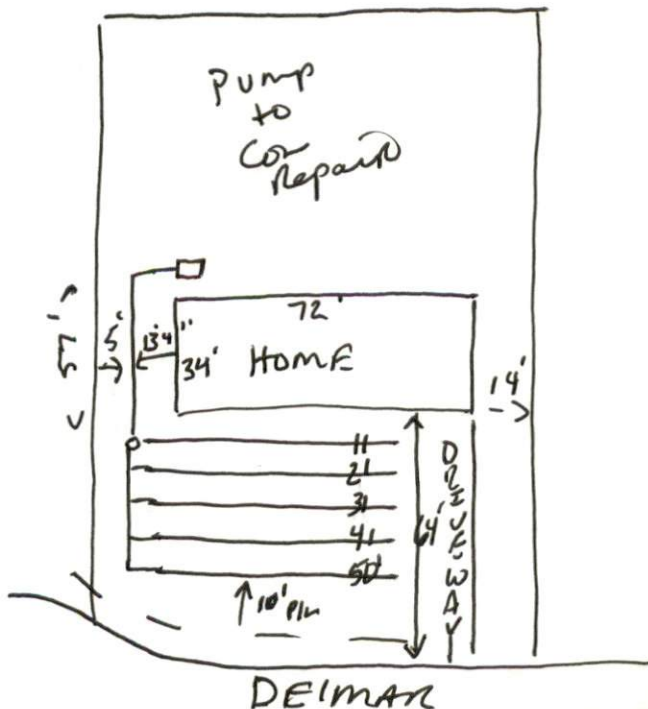 Pump
to
Con
Repair
72'
57'
5'
13'4"
34'
HOME
14'
11
21
31
41
50'
64'
DRIVEWAY
10' P/L
DElMAR